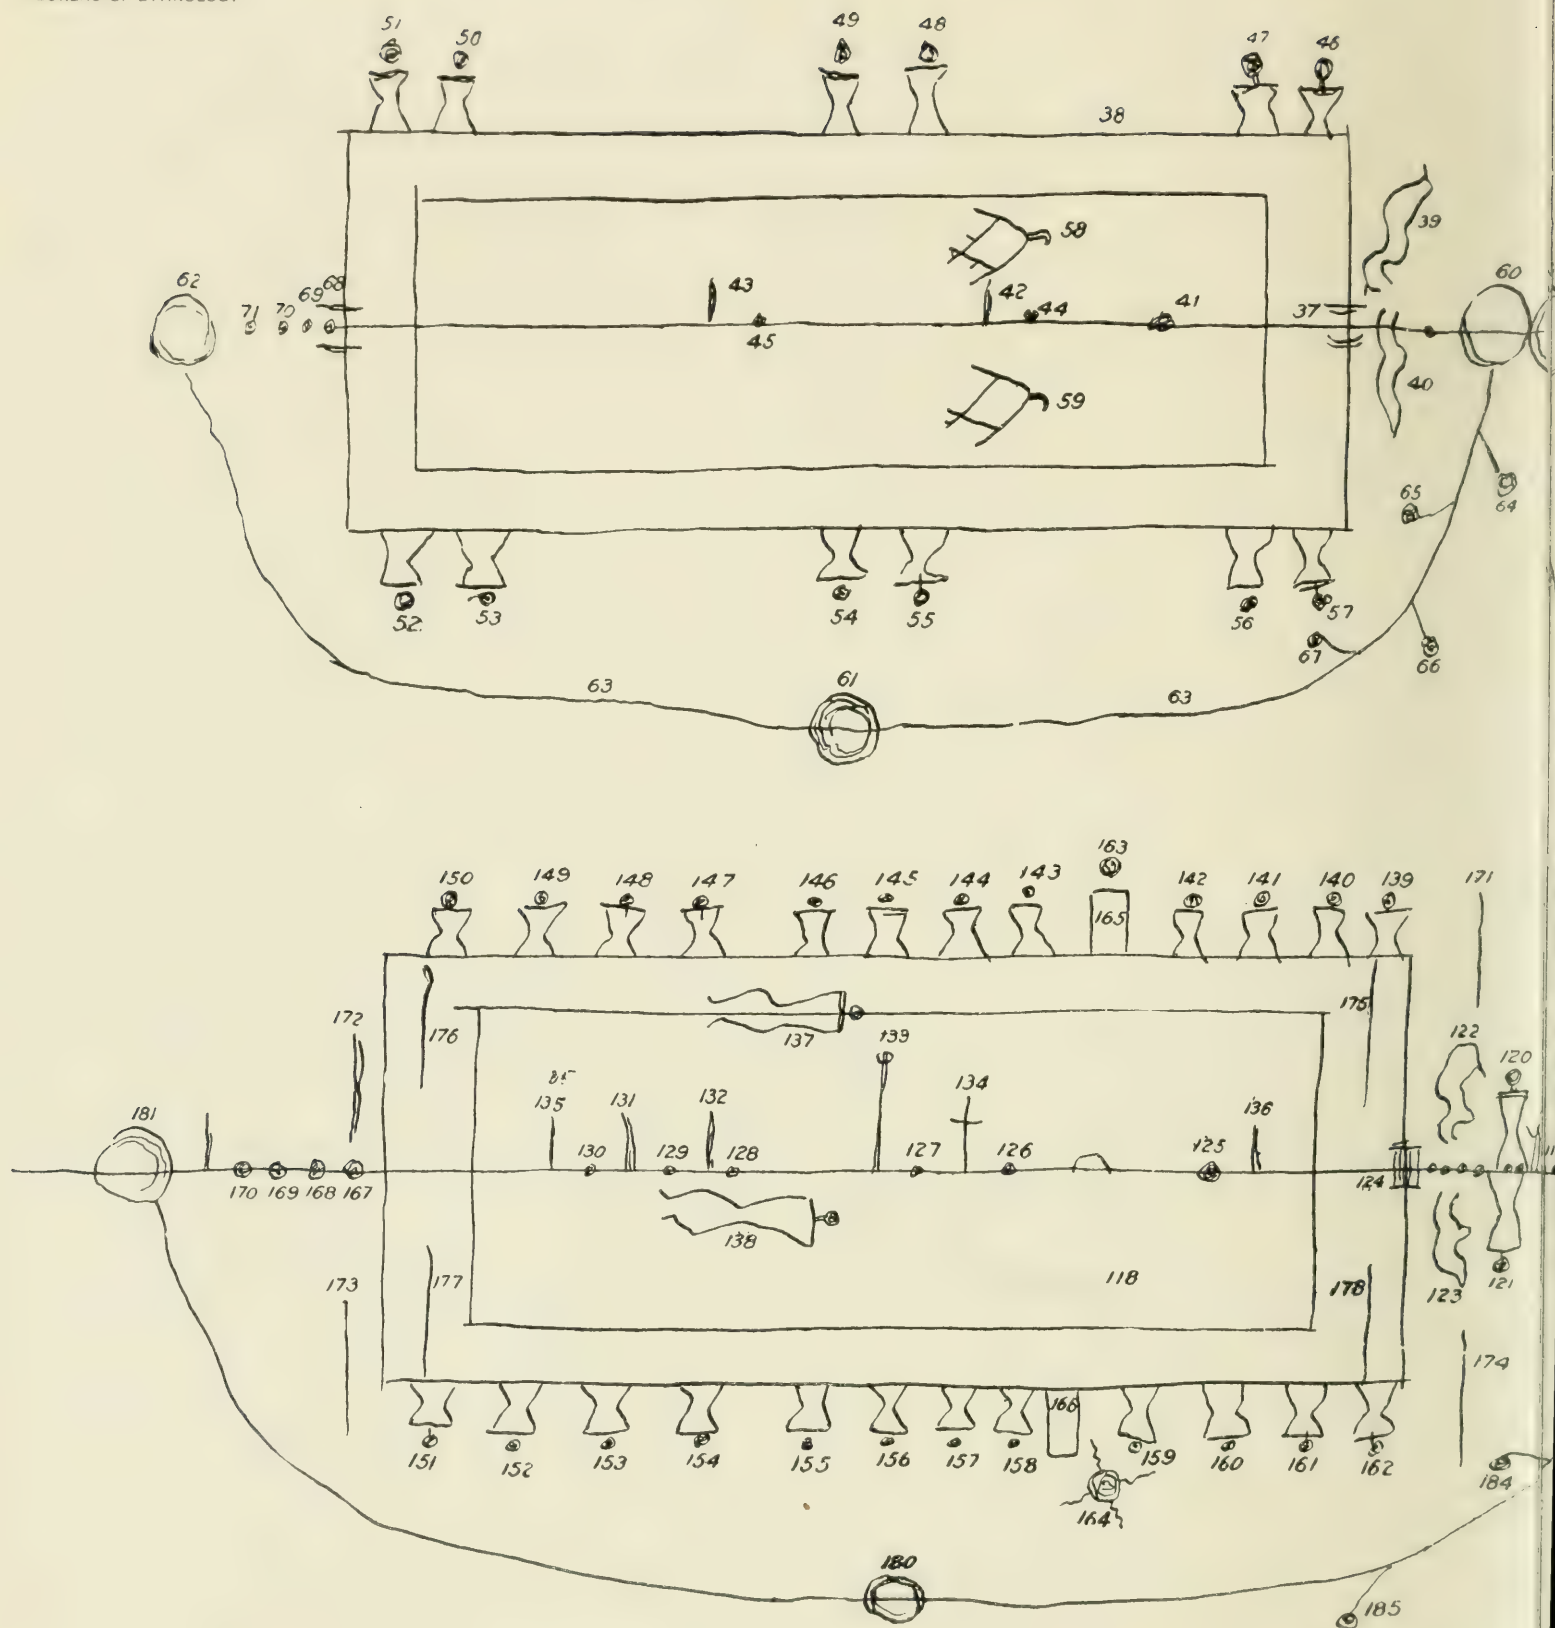 51 50 49 48 47 46
38
39
62 71 70 69 68 43 45 42 44 58 41 37 60
59 40
65 64
52 53 54 55 56 57
67 66
63 61 63
150 149 148 147 146 145 144 143 163 142 141 140 139 171
165
172 176 137 139 175 122 120
181 135 131 132 134 136
130 129 128 127 126 125
170 169 168 167 124
138
173 177 118 178 123 121
174
166
151 152 153 154 155 156 157 158 159 160 161 162 184
164
180
185